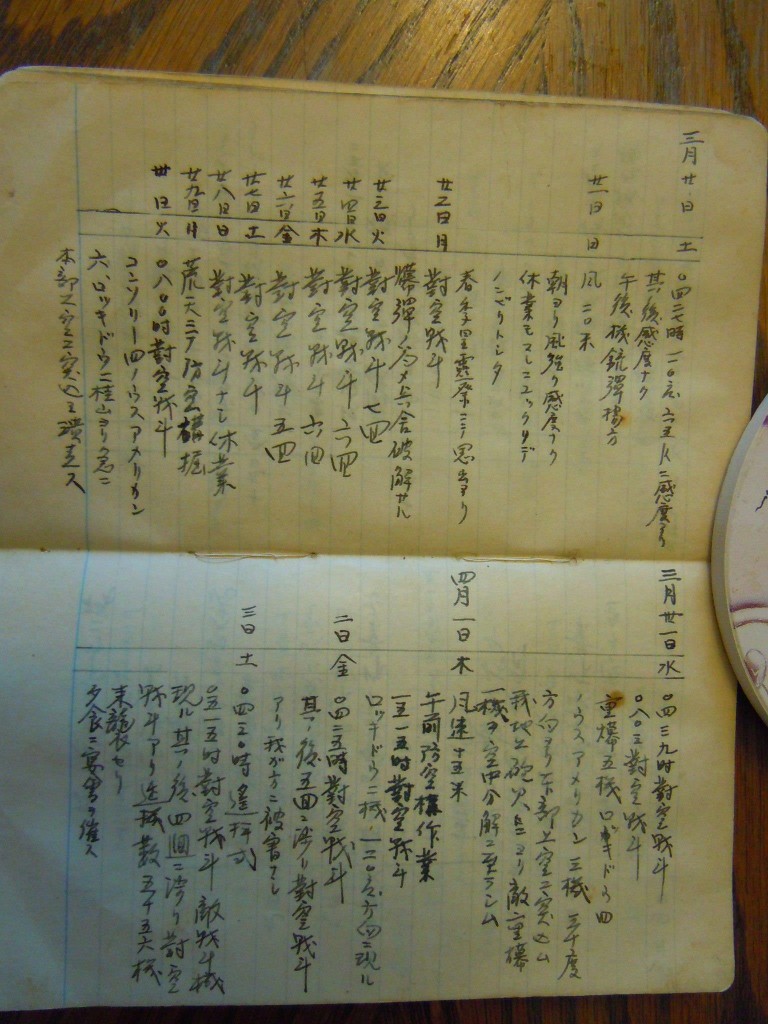 三月廿日 土
〇四二七時 一二〇度 六五K ニ感度アリ
其ノ後感度ナク
午後機銃彈搬方
廿一日 日
風二〇米
朝ヨリ風強ク感度ナク
休業モスレニユックタデ
ノンビリトシタ
春季皇霊祭ニテ思出アリ
廿二日 月
對空战斗
爆彈ノ為メ兵舎破解サル
廿三日 火
對空战斗 七回
廿四日 水
對空战斗 六回
廿五日 木
對空战斗 六回
廿六日 金
對空战斗 五回
廿七日 土
對空战斗
廿八日 日
對空战斗ナシ休業
廿九日 月
荒天ニテ防空壕掘
卅日 火
〇八〇〇時對空战斗
コンソリー四ノウスアメリカン
六、ロッキドウ二桂山ヨリ急ニ
本部上空ニ突込ミ潰走ス
三月卅一日 水
〇四三九时對空战斗
〇八〇三對空战斗
重爆五機ロッキドウ四
ノウスアメリカン三機 三十度
方向ヨリ本部上空ニ突込ム
我地上砲火ニヨリ敵重爆
一機ヲ空中分解ニ至ラシム
四月一日 木
风速十五米
午前防空壕作業
一五一五時對空战斗
ロッキドウ二機一二〇度方向ニ現ル
二日 金
〇四二五時對空战斗
其ノ後五回ニ渉リ對空战斗
アリ我ガ方ニ被害ナシ
三日 土
〇四三〇時遙拜式
〇五一五时對空战斗敵战斗機
現ル其ノ後四回ニ渉リ對空
战斗アリ延機数五十五六機
来襲セリ
夕食ニ宴會ヲ催ス